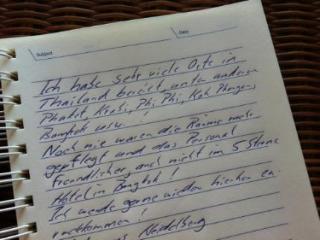 Subject Date
Ich habe sehr viele Orte in
Thailand bereist, unter anderem
Phuket, Krabi, Phi Phi, Koh
Bangkok usw. !
Noch nie waren die Räume mehr
gepflegt und das Personal
freundlicher, auch nicht im 5 Sterne
Hotel in Bangkok !
Ich werde gerne wieder hierher zu-
rückkommen !
Heidelberg